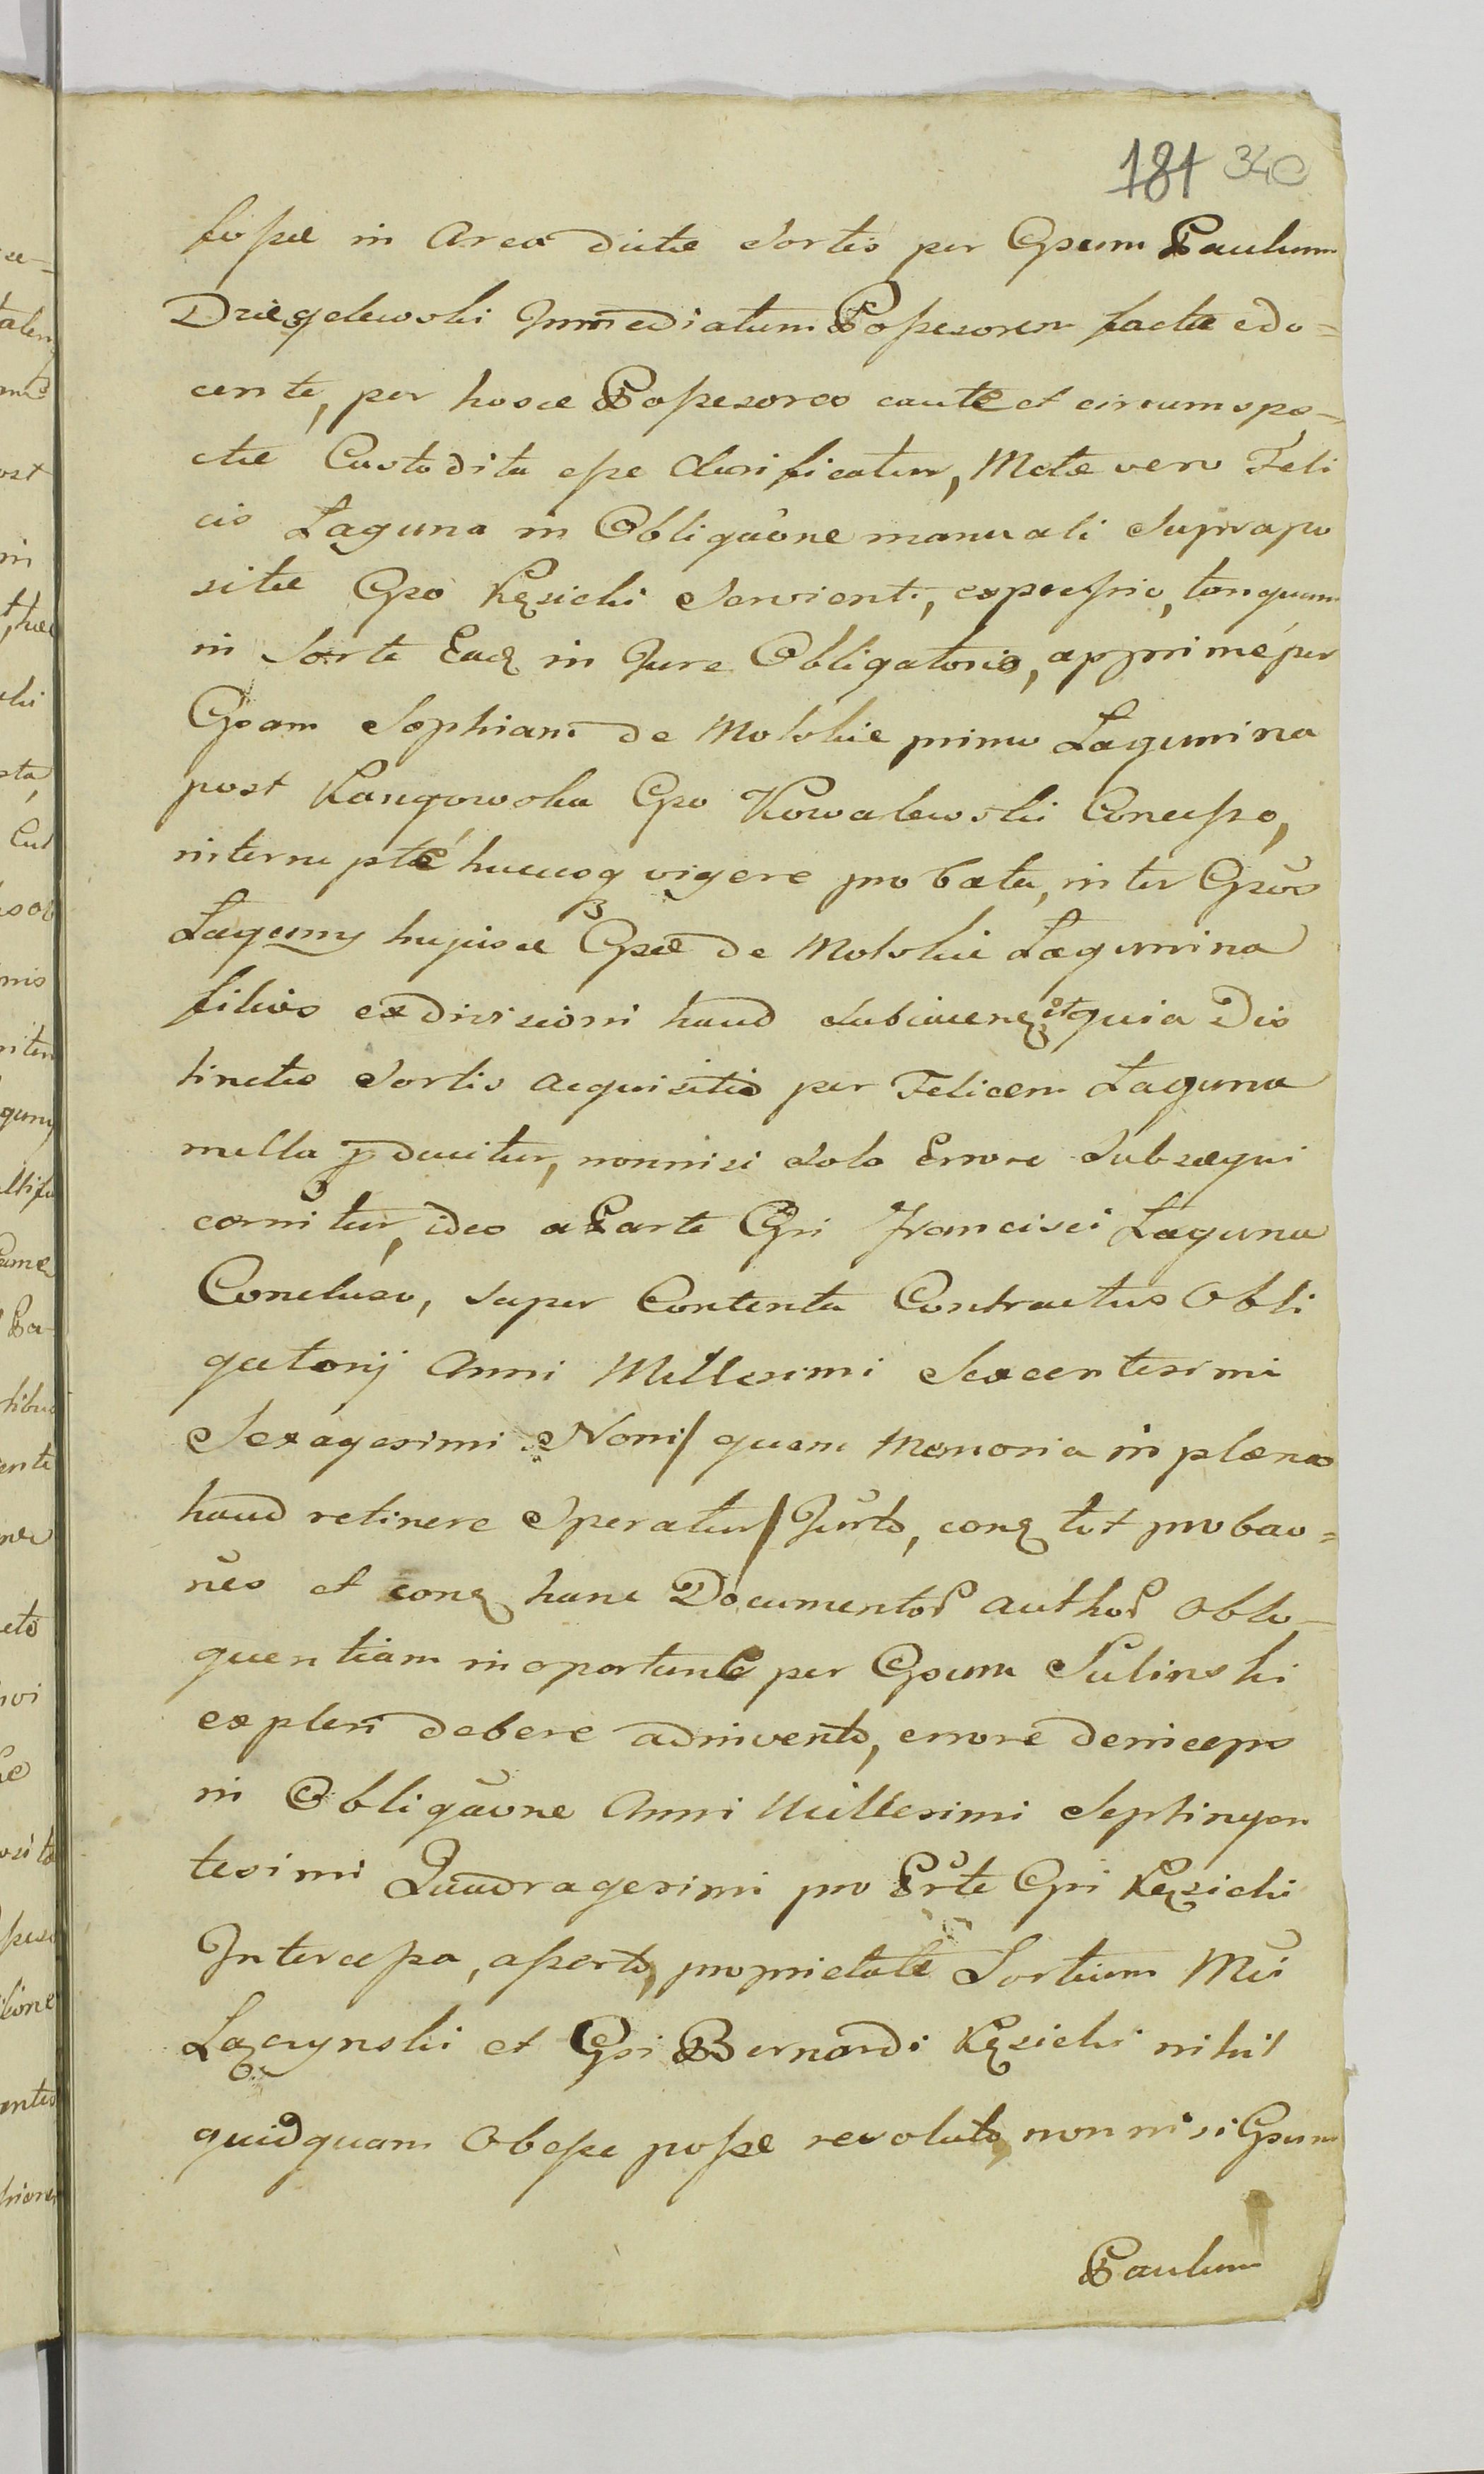 181 340
fossae in Area dictae Sortis per Gsum Paulum
Dziegelewski Immediatum Possesorem factae edo=
cente, per hosce Possesores caute et circumspe-
ctae Custodita esse clarificatur, Metae vero Feli
cis Laguna in Obligāone manuali Suprapo
sitae Gso Kęsicki Servienti, expressio, tanquam
in Sorte Eadq in Jure Obligatorio, apprime per
Gsam Sophiam de Molskie primo Lagunina
post Kangowska Gso Kowalewski Concesso,
interruptae hucusq vigere probata, inter Gsōs
Laguny hujusce Gsae de Molskie Lagunina
filios exdivisioni haud subjacenq et quia Dis
tinctio Sortis acquisitio per Felicem Laguna
nulla pducitur, nonnisi Solo Errore Subsequi
cernitur, ideo a Parte Gsi Francisci Laguna
Concluso, super Contenta Contractus Obli
gatorij Anni Millesimi Sexcentesimi
Sexagesimi Noni/ quem Memoria in plena
haud retinere Speratur/ Jurto, conq tot probao=
nēs et conq hanc Documentor author Oblo-
quentiam inoportune per Gsum Sulinski
expleri debere adinvento, errore deniceps
in Obligāone Anni Millesimi Septingen
tesimi Quadragesimi pro Parte Gsi Kęsicki
Intercessa, aperto, proprietate Sortium Mci
Łączynski et Gsi Bernardi Kęsicki nihil
quidquam Obesse posse revoluto, nonnisi Gsum
Paulum